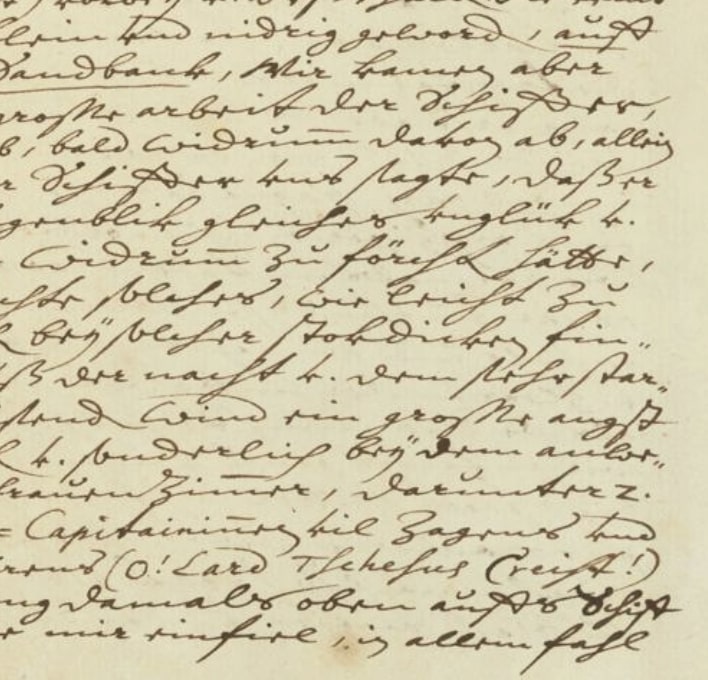 klein und nidrig geword, auff
Sandbank, Wir kamen aber
grosse arbeit der Schiffer,
b, bald widrum̅ davon ab, allein
r Schiffer uns sagte, daß er
genblik gleiches unglük u.
widrum̅ zu förcht hätte,
chte solches, wie leicht zu
bey solcher stokdicken fin=
ß der nacht u. dem sehr star=
send wind ein grosse angst
u. sonderlich bey dem anwe=
frauenzimmer, darunter 2.
= Capitainin̅en vil Zagens und
rens (O! Lard Tschesus Creist!)
ng damals oben auffs Schiff
e mir einfiel, in allem fahl